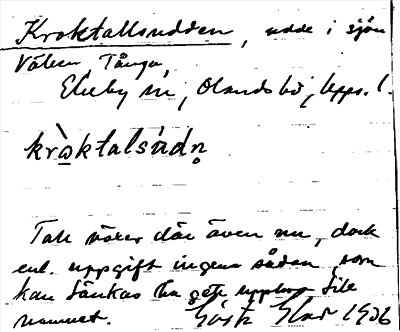 Kroktallsudden, udde i sjön
Vällen Tånga
Ekeby sn, Olands hd, Upps. l.
kròktalsúdn̥
Tall växer där även nu, dock
enl. uppgift ingen sådan, som
kan tänkas ha gett upphov till
namnet. Gösta 1936